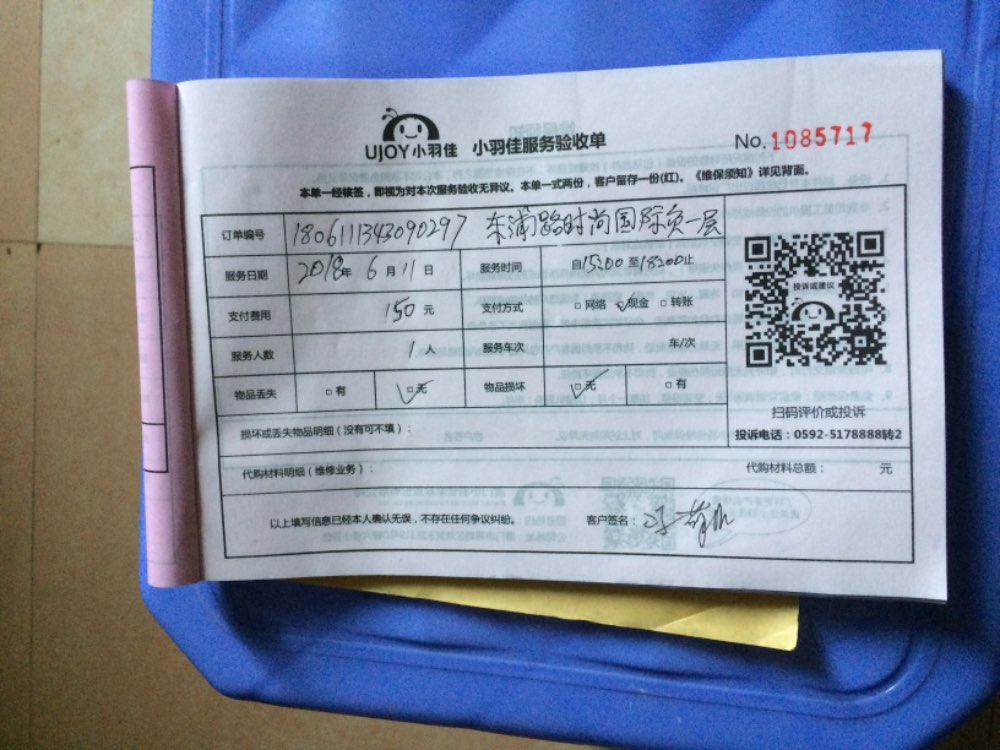 UJOY小羽佳 小羽佳服务验收单 No.1085717
本单一经核签，即视为对本次服务验收无异议。本单一式两份，客户留存一份(红)。《维保须知》详见背面。
订单编号 1806111343090297 东浦路时尚国际负一层
服务日期 2018年 6月 11日 服务时间 自15:00 至18:00止
支付费用 150 元 支付方式 □网络 ☑现金 □转账
服务人数 1 人 服务车次 年/次
物品丢失 □有 ☑无 物品损坏 ☑无 □有
投诉或建议
扫码评价或投诉
投诉电话：0592-5178888转2
损坏或丢失物品明细（没有可不填）：
代购材料明细（维修业务）： 代购材料总额： 元
以上填写信息已经本人确认无误，不存在任何争议纠纷。 客户签名：